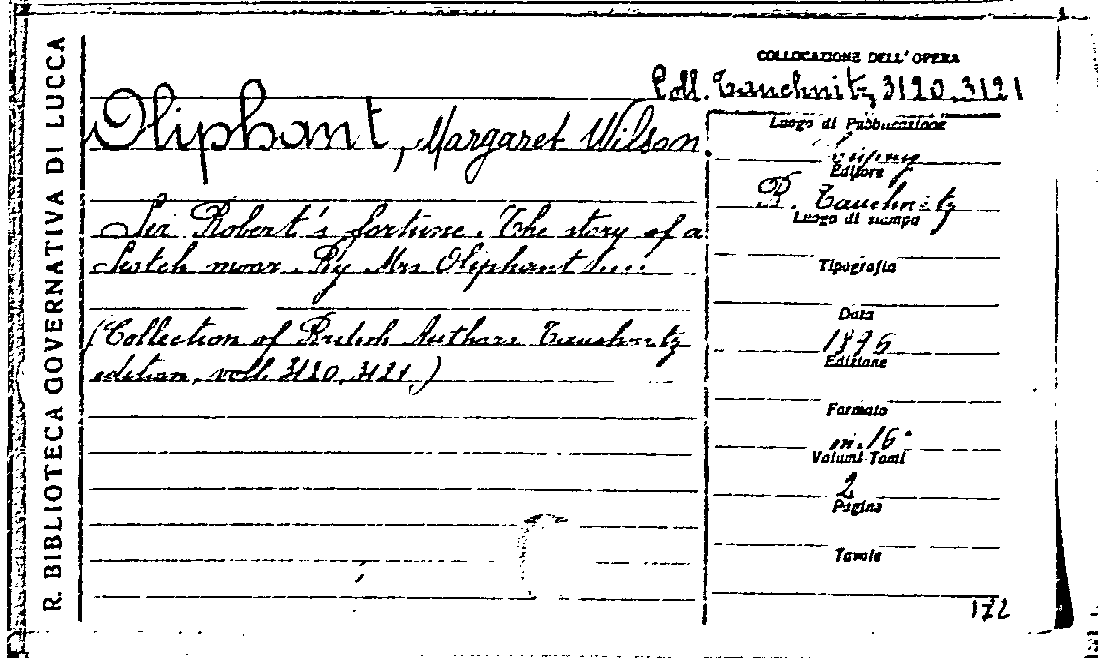 R. BIBLIOTECA GOVERNATIVA DI LUCCA
COLLOCAZIONE DELL' OPERA
Coll. Tauchnitz 3120.3121
Oliphant, Margaret Wilson.
Luogo di Pubblicazione
Editore
B. Tauchnitz
Luogo di stampa
Sir Robert's fortune. The story of a
Scotch moor. By Mrs Oliphant
Tipografia
Data
1895
Edizione
(Collection of British Authors Tauchnitz
edition, voll. 3120.3121.)
Formato
in. 16°
Volumi Tomi
2
Pagina
Tavole
172